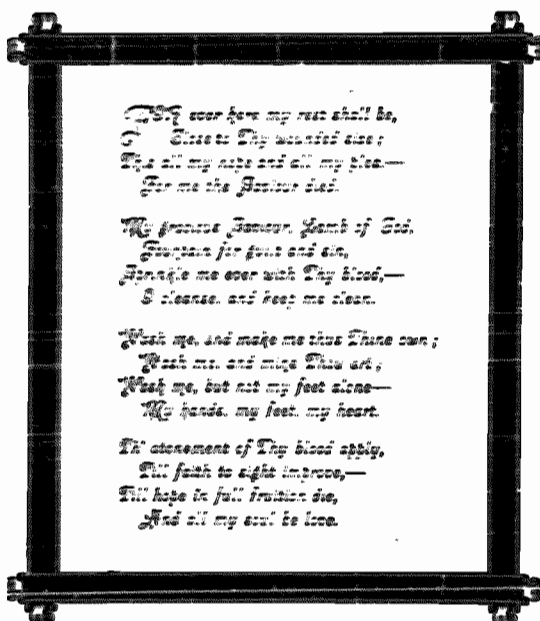 FOR ever here my rest shall be,
Close to Thy wounded side;
This all my hope and all my plea—
For me the Saviour died.
My gracious Saviour, Lamb of God,
Fountain for guilt and sin,
Sprinkle me ever with Thy blood,—
O cleanse, and keep me clean.
Wash me, and make me thus Thine own;
Wash me, and mine Thou art;
Wash me, but not my feet alone—
My hands, my feet, my heart.
Th' atonement of Thy blood apply,
Till faith to sight improve,—
Till hope in full fruition die,
And all my soul be love.